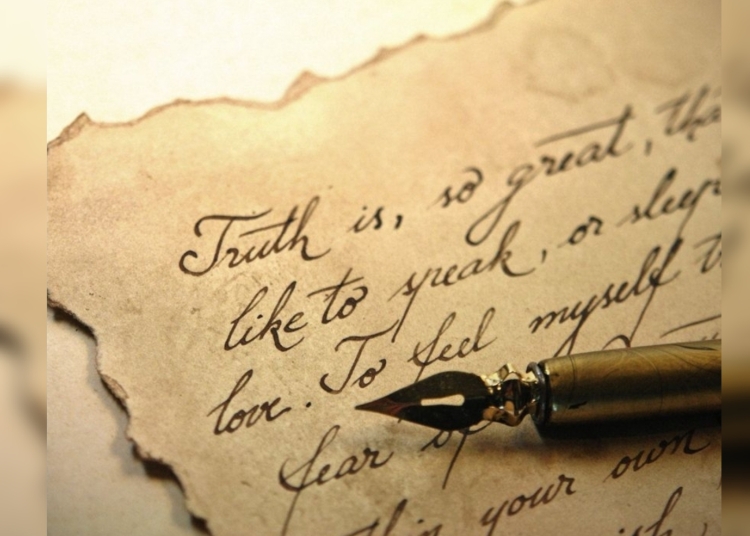 Truth is, so great, tha
like to speak, or sleep
love. To feel myself t
fear of
your own